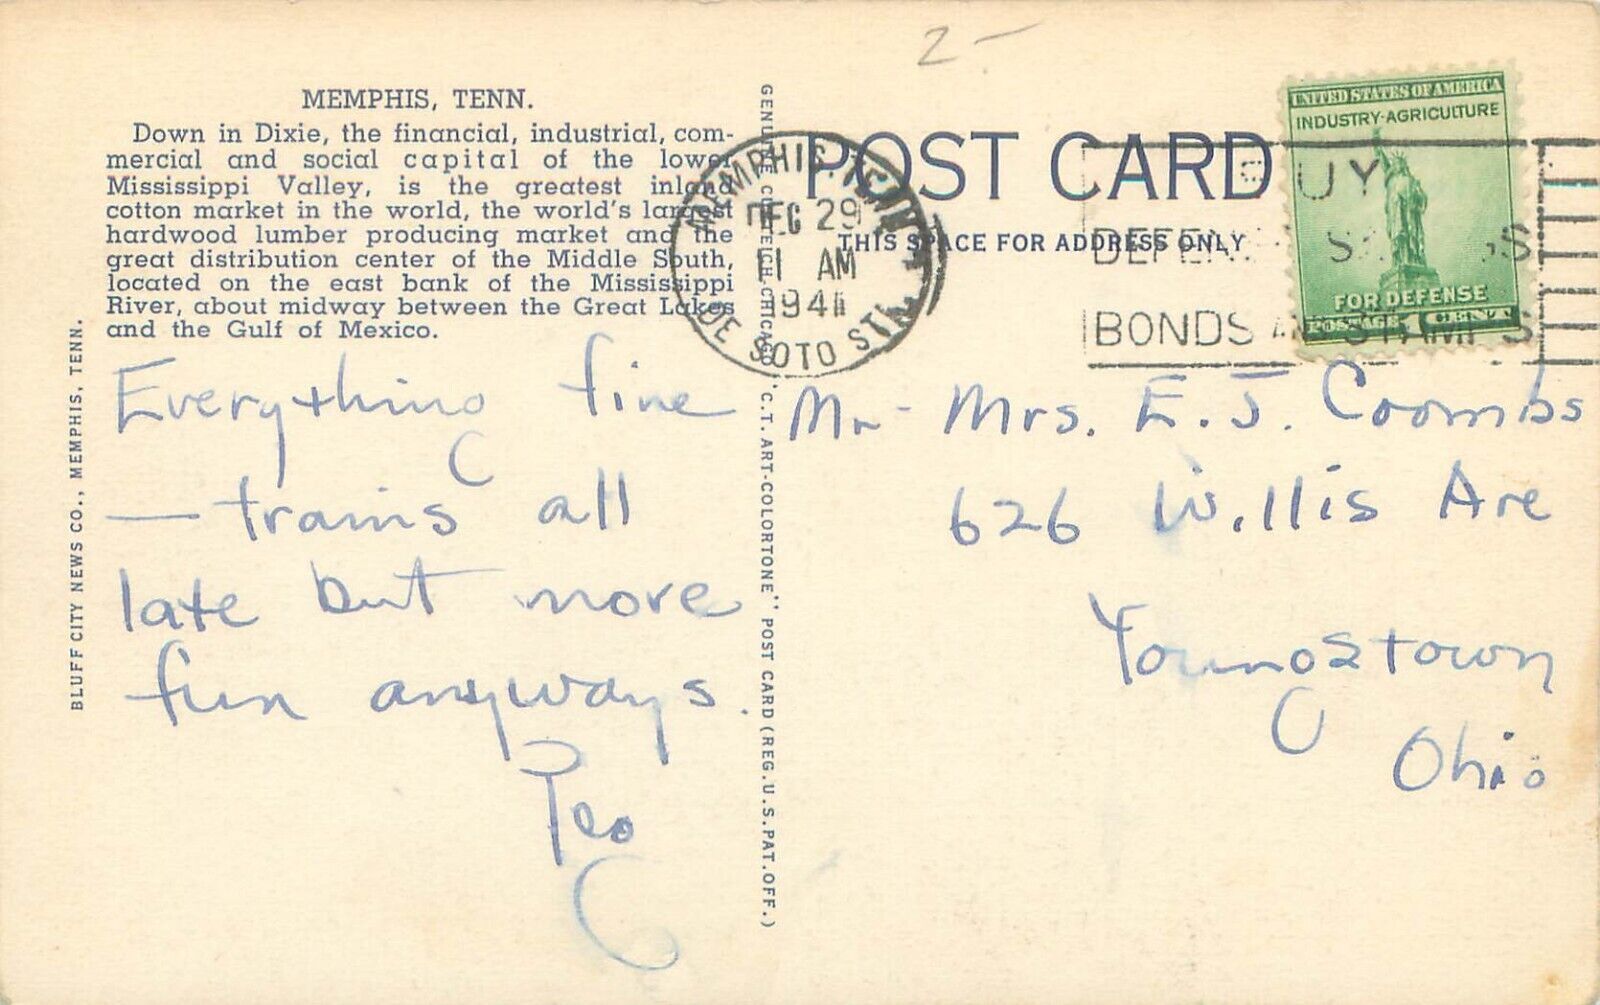 2-
MEMPHIS, TENN.
Down in Dixie, the financial, industrial, com-
mercial and social capital of the lower
Mississippi Valley, is the greatest inland
cotton market in the world, the world's largest
hardwood lumber producing market and the
great distribution center of the Middle South,
located on the east bank of the Mississippi
River, about midway between the Great Lakes
and the Gulf of Mexico.
Everything fine
— trains all
late but more
fun anyways.
Peg
BLUFF CITY NEWS CO., MEMPHIS, TENN.
GENUINE CURTEICH-CHICAGO "C.T. ART-COLORTONE" POST CARD (REG. U.S. PAT. OFF.)
POST CARD
THIS SPACE FOR ADDRESS ONLY
MEMPHIS, TENN.
DEC 29
11 AM
1941
DE SOTO STA.
BUY
DEFENSE SAVINGS
BONDS AND STAMPS
UNITED STATES OF AMERICA
INDUSTRY-AGRICULTURE
FOR DEFENSE
POSTAGE 1 CENT
Mr Mrs. E. J. Coombs
626 Willis Ave
Youngstown
Ohio